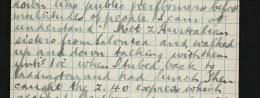 down as public performers before
multitudes of people I cannot
understand. Met 2 Australian
sisters from and walked
up and down talking with them
until 12 when I tubed back to
Paddington and had lunch. Then
caught the 2.40 express which